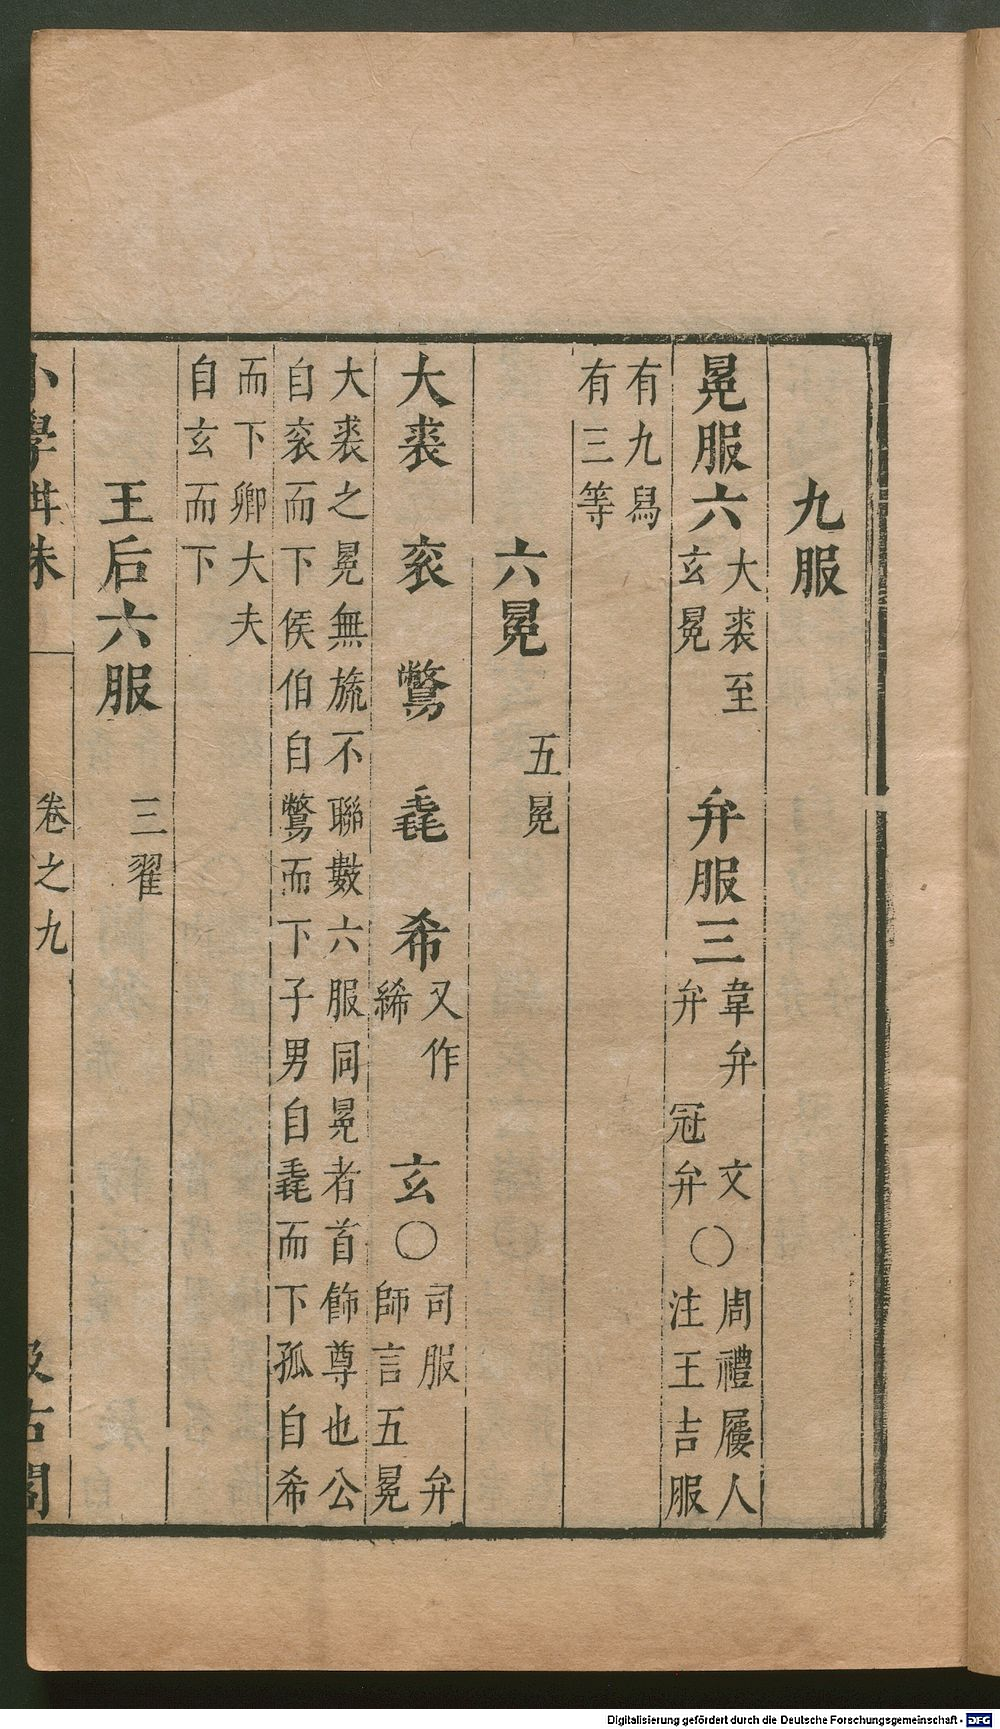 九服
冕服六 大裘至
玄冕
弁服三 韋弁 文
弁 冠弁
○ 周禮屨人
注王吉服
有九舄
有三等
六冕 五冕
大裘 衮 鷩 毳 希 又作
絺
玄 ○ 司服 弁
師言五冕
大裘之冕無旒不聯數六服同冕者首飾尊也公
自衮而下侯伯自鷩而下子男自毳而下孤自希
而下卿大夫
自玄而下
王后六服 三翟
小學紺珠 卷之九 汲古閣
Digitalisierung gefördert durch die Deutsche Forschungsgemeinschaft - DFG